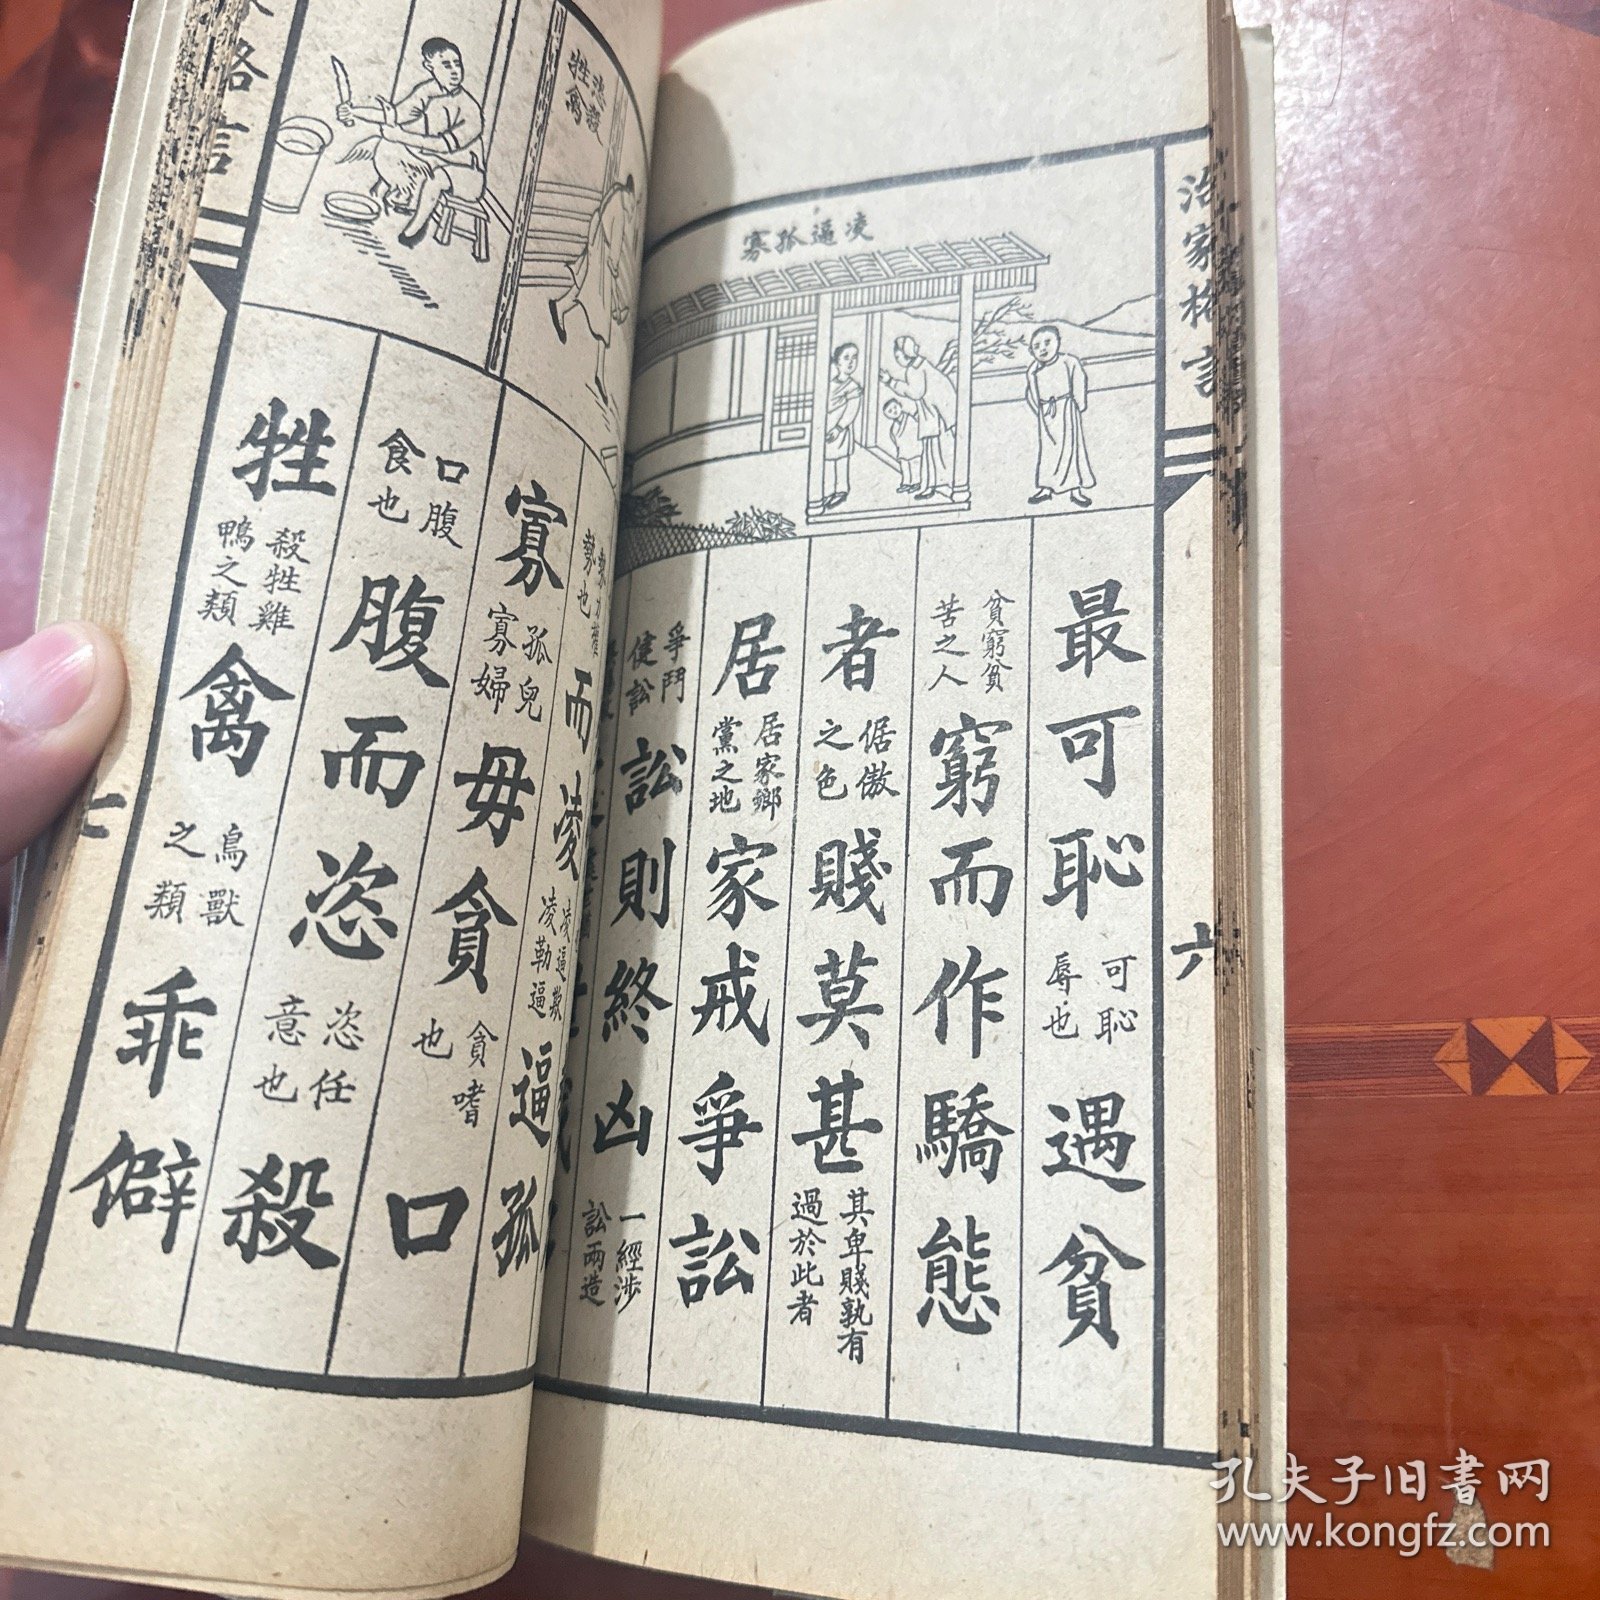 治家格言
凌逼孤寡
最可恥可恥辱也遇貧
貧窮貧苦之人窮而作驕態
者倨傲之色賤莫甚其卑賤孰有過於此者
居居家鄉黨之地家戒爭訟
爭鬥健訟訟則終凶一經涉訟兩造
六
勢也
而凌凌逼欺凌勒逼逼孤
寡孤兒寡婦毋貪貪嗜也口
口腹食也腹而恣恣任意也殺
牲殺牲雞鴨之類禽鳥獸之類乖僻
恣殺牲禽
格言
七
孔夫子旧书网
www.kongfz.com